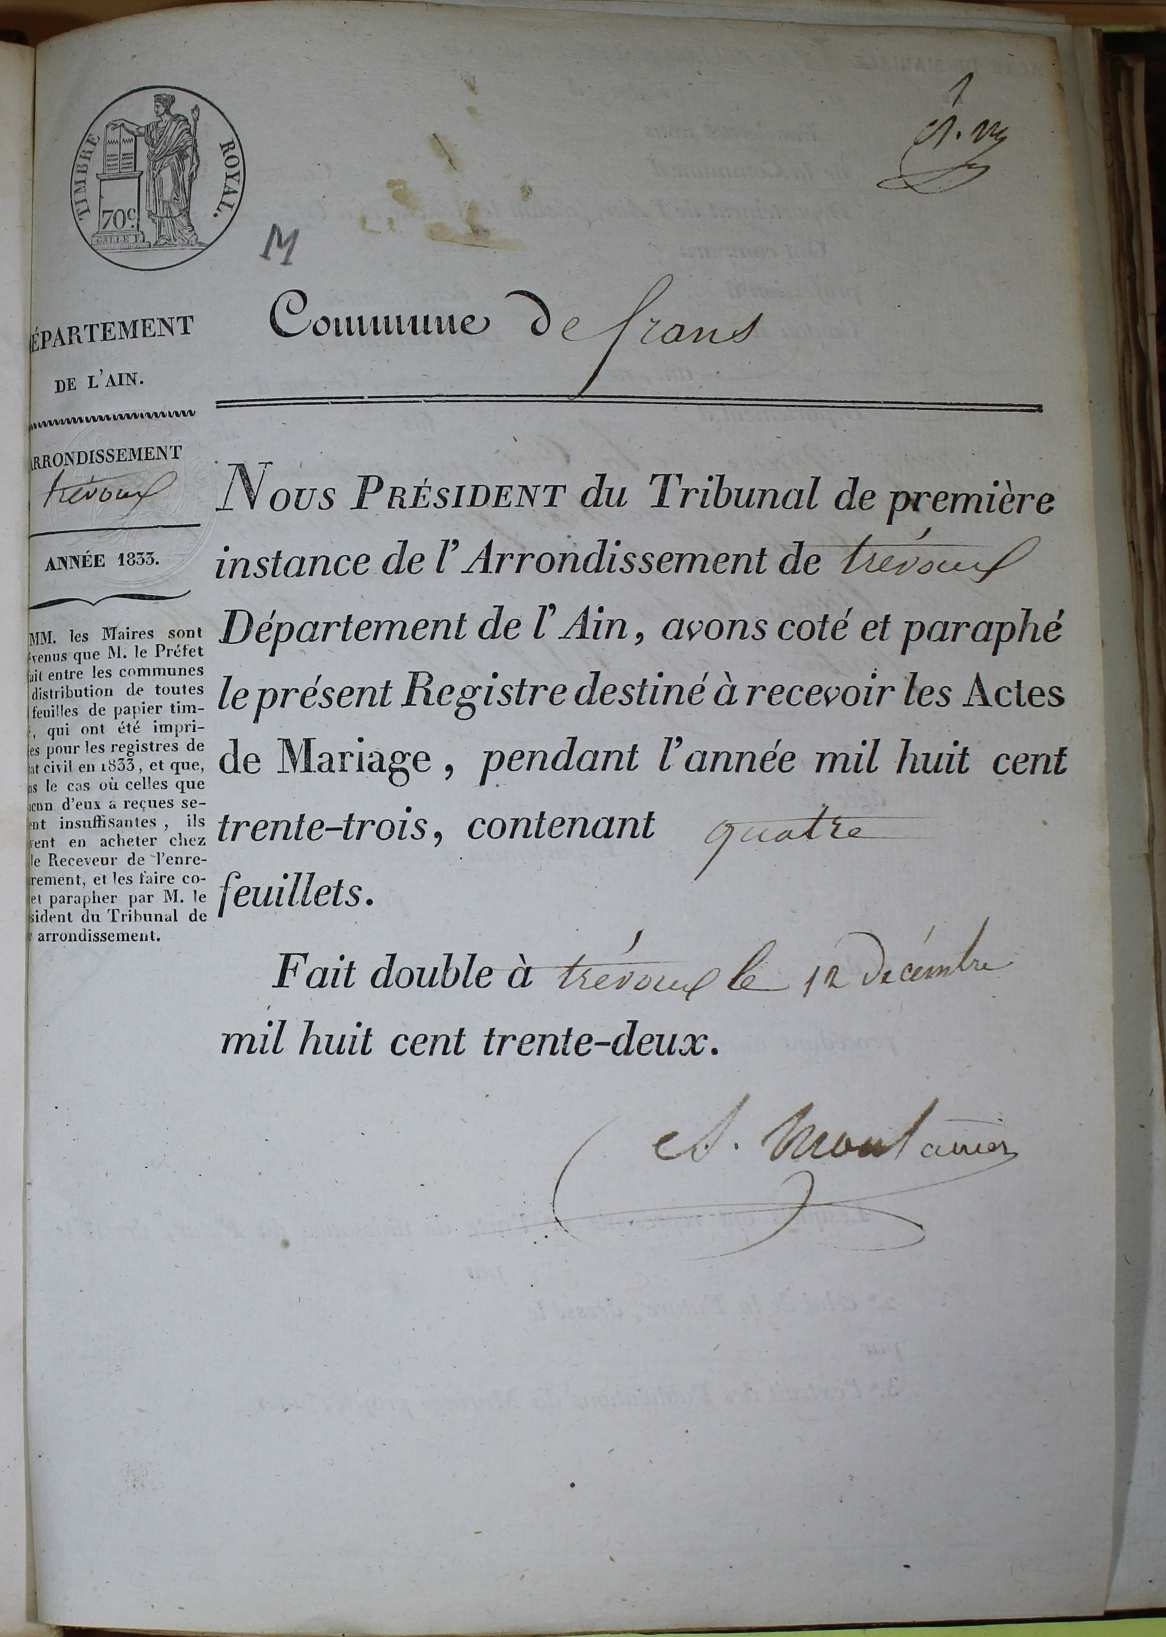 TIMBRE ROYAL.
70c
1
M
Commune De frans
ÉPARTEMENT
DE L'AIN.
ARRONDISSEMENT
trévoux
ANNÉE 1833.
MM. les Maires sont
venus que M. le Préfet
ait entre les communes
distribution de toutes
feuilles de papier tim-
, qui ont été impri-
es pour les registres de
at civil en 1833, et que,
s le cas où celles que
cun d'eux a reçues se-
ent insuffisantes, ils
vent en acheter chez
le Receveur de l'enre-
rement, et les faire co-
et parapher par M. le
sident du Tribunal de
arrondissement.
NOUS PRÉSIDENT du Tribunal de première
instance de l'Arrondissement de trévoux
Département de l'Ain, avons coté et paraphé
le présent Registre destiné à recevoir les Actes
de Mariage, pendant l'année mil huit cent
trente-trois, contenant quatre
feuillets.
Fait double à trévoux le 12 Décembre
mil huit cent trente-deux.